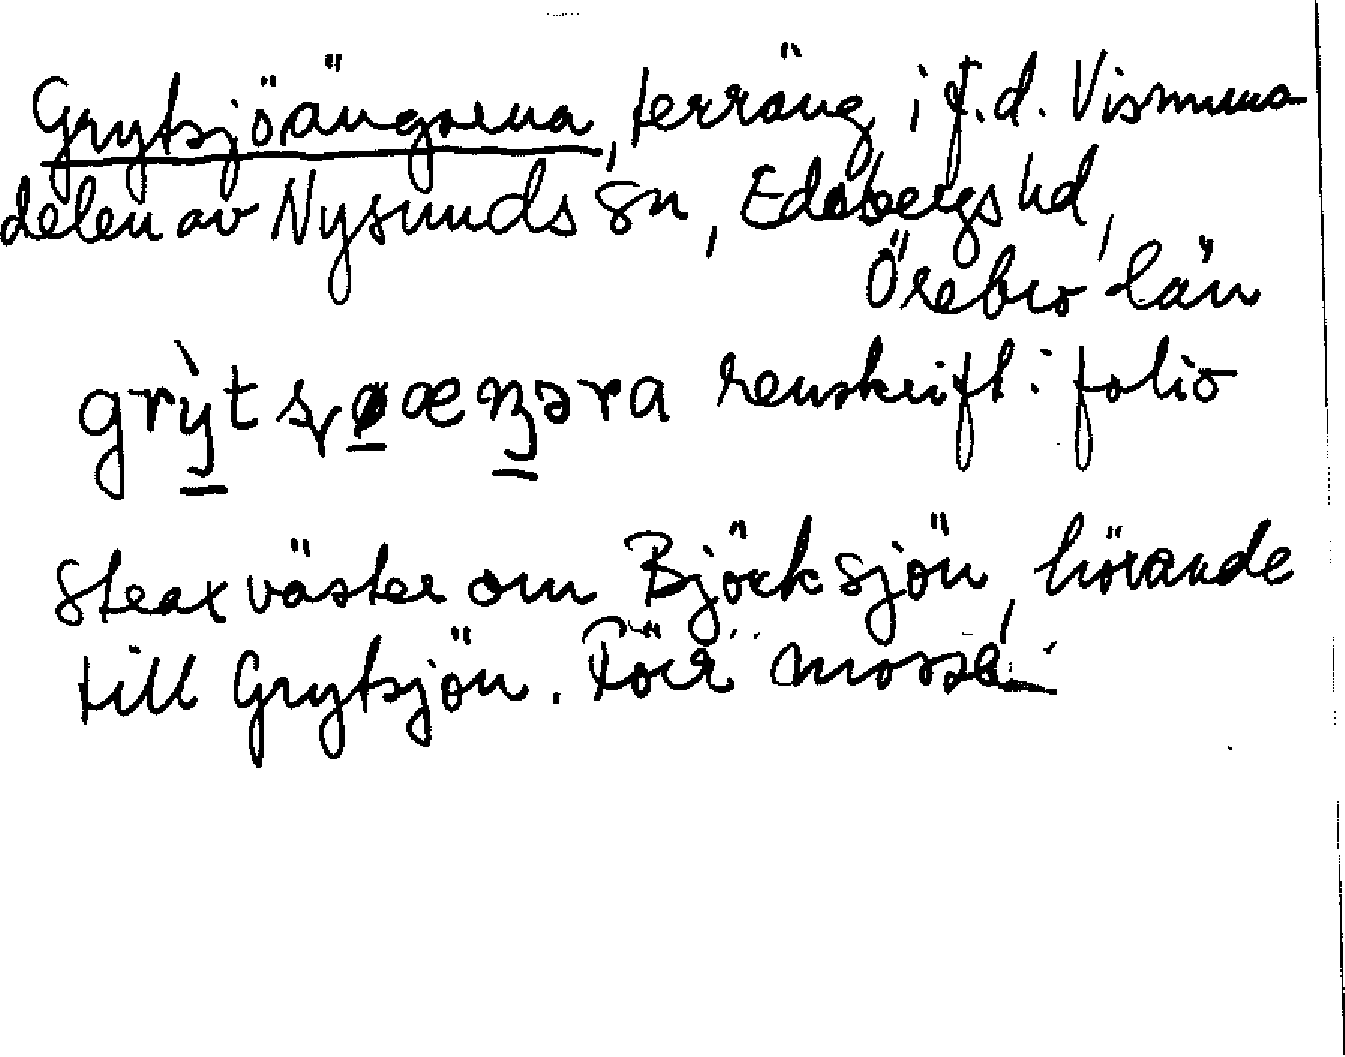 Grytsjöängarna, terräng i f.d. Visnums-
delen av Nysunds sn, Edsbergs hd,
Örebro län
renskrift: folio
Strax väster om Björksjön, hörande
till Grytsjön. Förr mosse